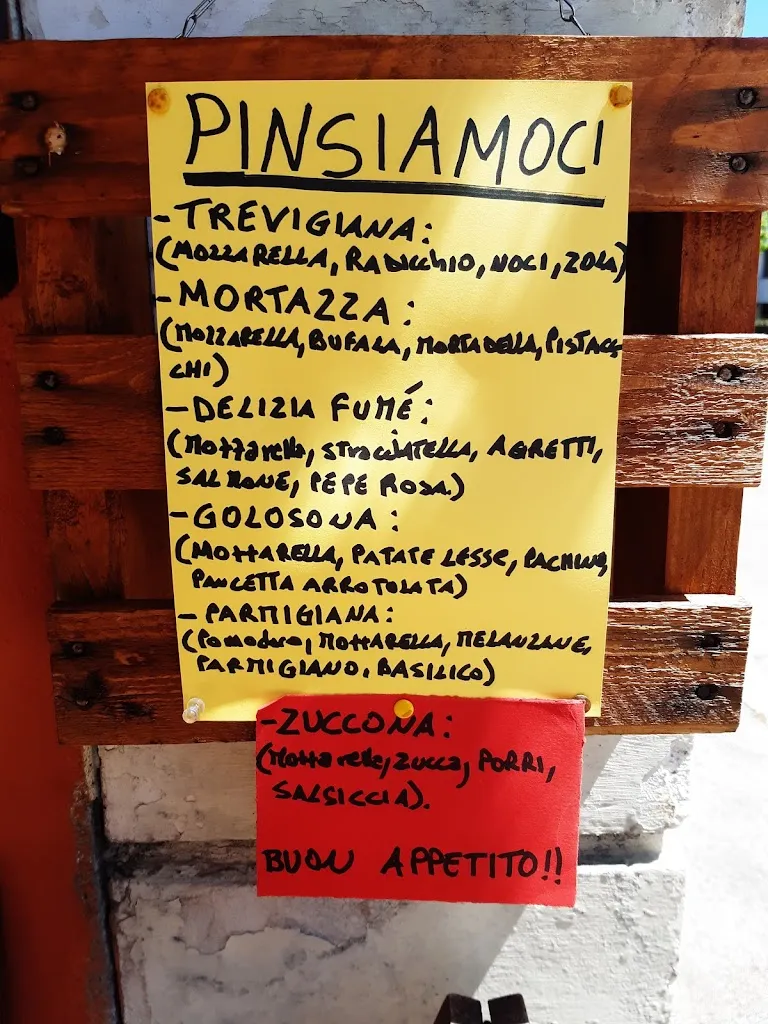 PINSIAMOCI
- TREVIGIANA:
(MOZZARELLA, RADICCHIO, NOCI, ZOLA)
- MORTAZZA:
(MOZZARELLA, BUFALA, MORTADELLA, PISTAC-
CHI)
- DELIZIA FUMÉ:
(Mozzarella, STRACCIATELLA, AGRETTI,
SALMONE, PEPE ROSA)
- GOLOSONA:
(MOZZARELLA, PATATE LESSE, PACHINO,
PANCETTA ARROTOLATA)
- PARMIGIANA:
(Pomodoro, MOZZARELLA, MELANZANE,
PARMIGIANO, BASILICO)
- ZUCCONA:
(Mozzarella, ZUCCA, PORRI,
SALSICCIA).
BUON APPETITO!!